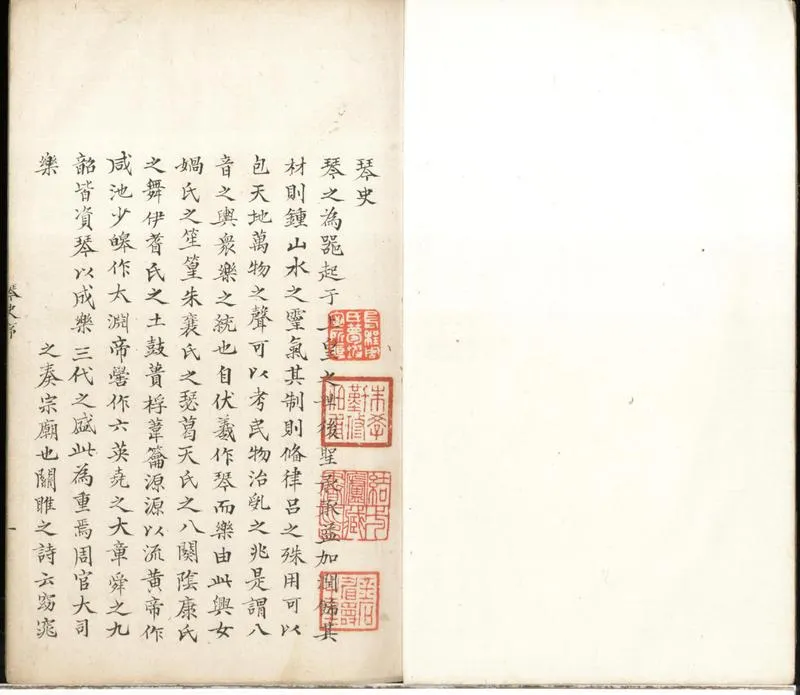 琴史
琴之為噐起于上皇之世後聖承益加潤飾其
材則鍾山水之靈氣其制則俻律呂之殊用可以
包天地萬物之聲可以考民物治亂之兆是謂八
音之輿衆樂之統也自伏羲作琴而樂由此興女
媧氏之笙篁朱襄氏之瑟葛天氏之八闋陰康氏
之舞伊耆氏之土鼓蕢桴葦籥源源以流黄帝作
咸池少皥作太淵帝嚳作六英堯之大章舜之九
韶皆資琴以成樂三代之盛此為重焉周官大司
樂 之奏宗廟也關雎之詩云窈窕
琴史序
一
朱學勤修伯甫
結一廬藏書印